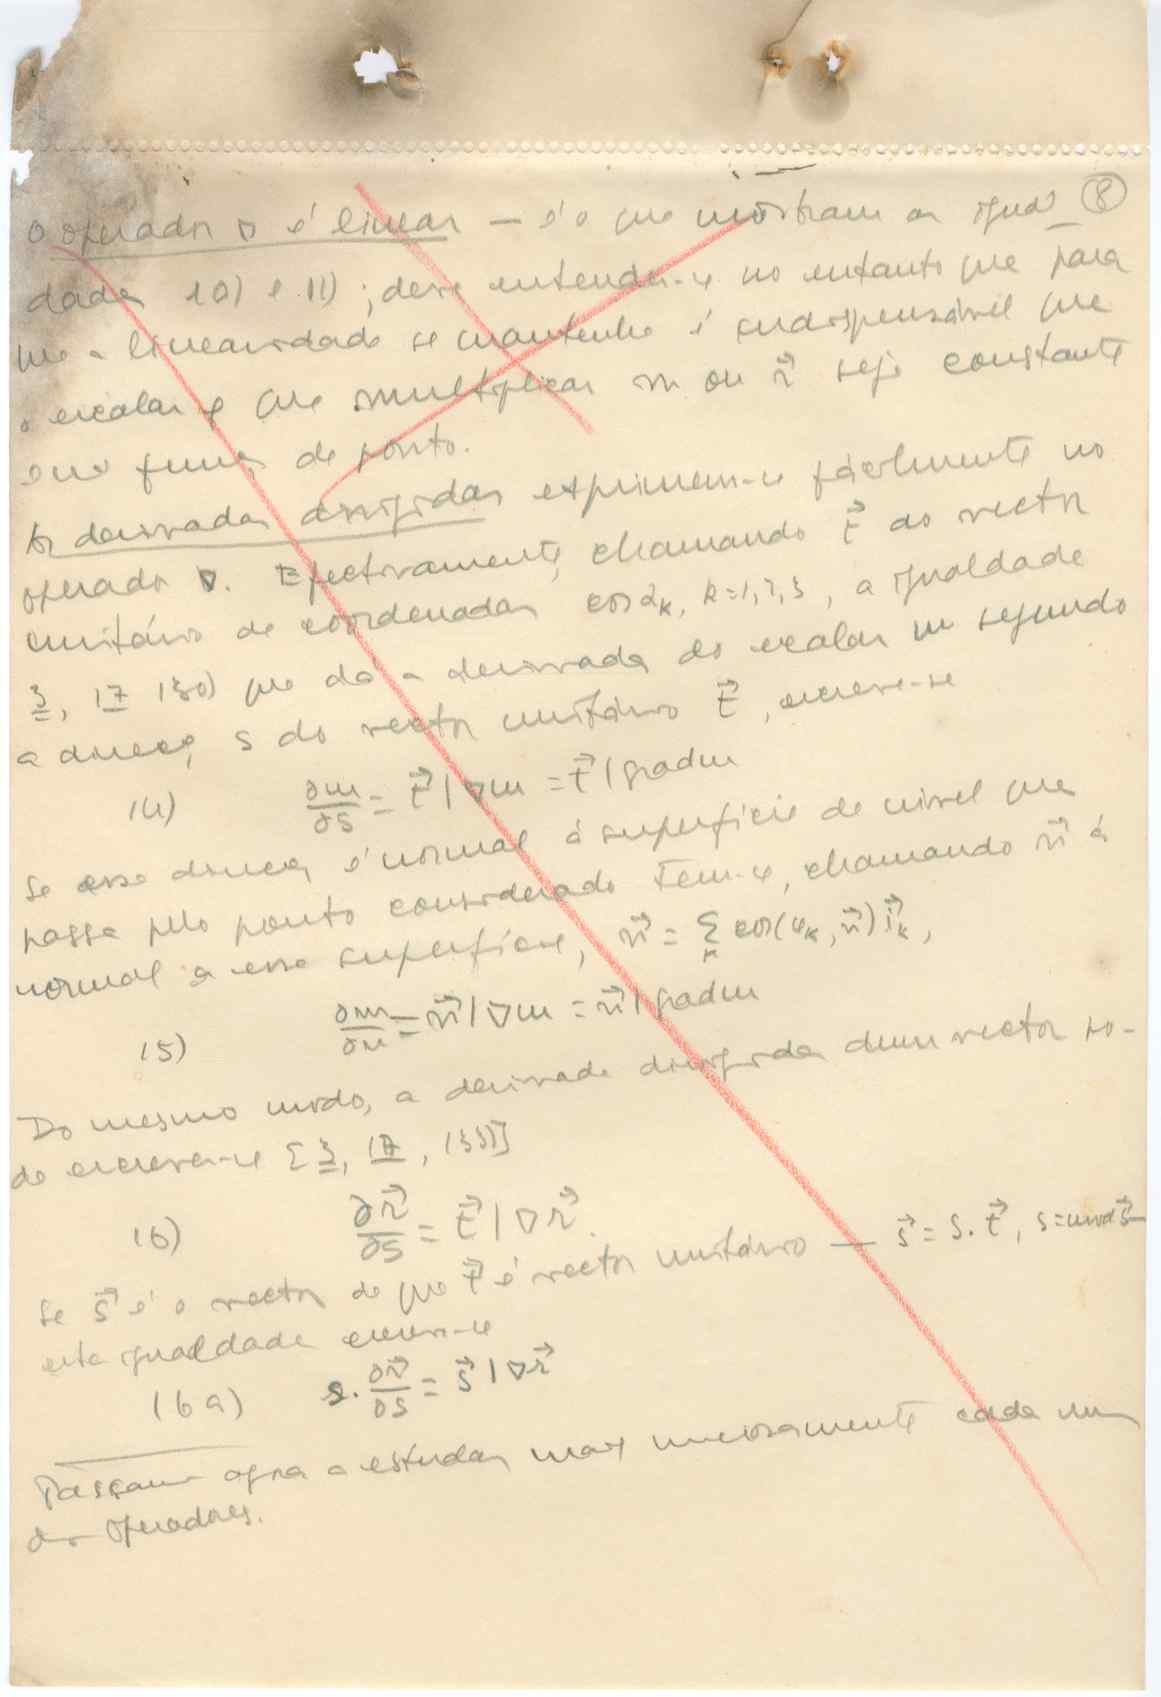 O operador ∇ é linear — é o que mostram as igual- ⑧
dades 10) e 11) ; deve entender-se no entanto que para
que a linearidade se mantenha é indispensável que
o escalar que multiplicar m ou r⃗ seja constante
e não função de ponto.
As derivadas dirigidas exprimem-se fàcilmente no
operador ∇. Efectivamente, chamando t⃗ ao vector
unitário de coordenadas cos α_k, k=1,2,3, a igualdade
3, 17 130) que dá a derivada do escalar m segundo
a direcção s do vector unitário t⃗, escreve-se
14) ∂m/∂s = t⃗ | ∇m = t⃗ | grad m
Se essa direcção é normal à superfície de nível que
passa pelo ponto considerado tem-se, chamando n⃗ à
normal a essa superfície, n⃗ = Σ_k cos(x_k, n⃗) i⃗_k,
15) ∂m/∂n = n⃗ | ∇m = n⃗ | grad m
Do mesmo modo, a derivada dirigida dum vector
escreve-se [3, 17, 133)]
16) ∂r⃗/∂s = t⃗ | ∇r⃗.
Se s⃗ é o vector de que t⃗ é vector unitário — s⃗ = s. t⃗, s = mod s⃗ —
esta igualdade escreve-se
16a) s. ∂r⃗/∂s = s⃗ | ∇r⃗
Passamos agora a estudar mais cada um
dos operadores.